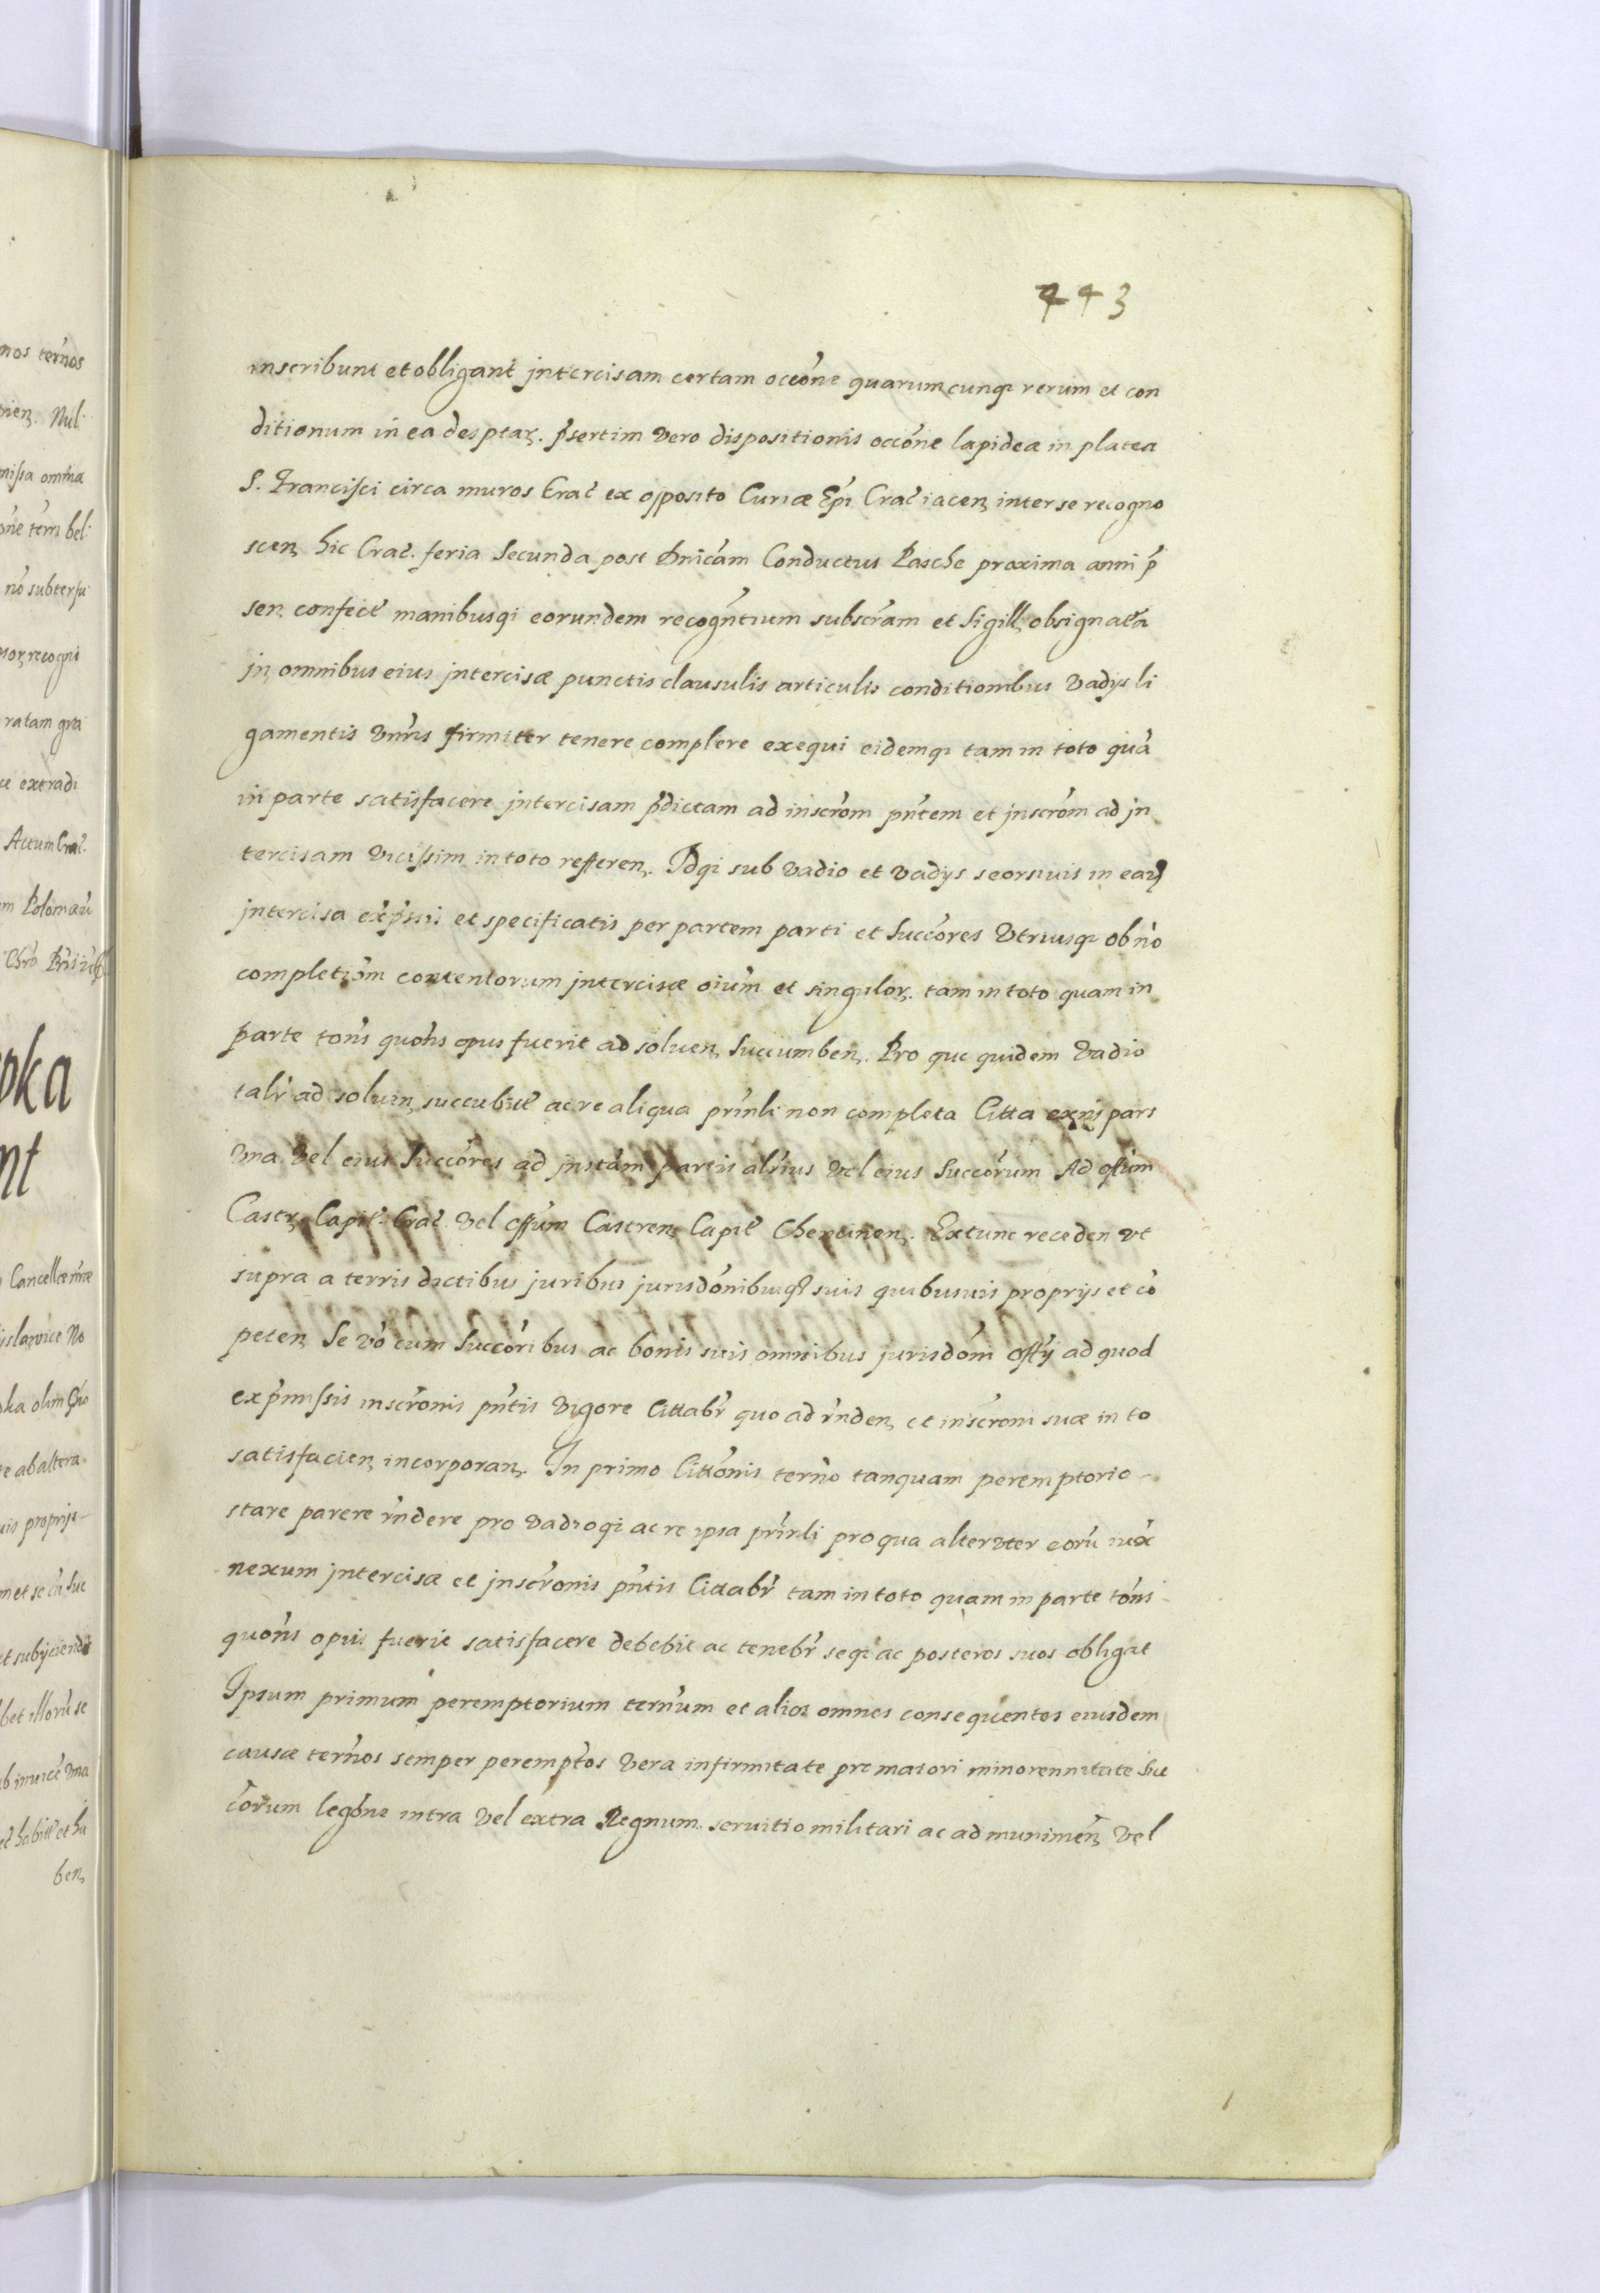 443
inscribunt et obligant jntercisam certam occone quarumcunq rerum et con
ditionum in ea desptaz. psertim vero dispositionis occone lapidea in platea
S. Francisci circa muros Crac ex opposito Curiæ Epi Crac iacen inter se recogno
scen hic Crac. feria Secunda post dnicam Conductus Pasche proxima anni p
sen confect manibusqi eorundem recogntium subscram et Sigill obsignata
jn omnibus eius jntercisæ punctis clausulis articulis conditionibus vadys li
gamentis vnris firmiter tenere complere exequi eidemqi tam in toto qua
in parte satisfacere jntercisam pdictam ad inscrom pntem et jnscrom ad jn
tercisam vicissim in toto refferen. Idqi sub vadio et vadys seorsiuis in eadz
jntercisa expssis et specificatis per partem parti et Succores vtriusqi ob no
completiom contentorum jntercisæ oium et singuloz. tam in toto quam in
parte tons quons opus fuerit ad soluen Succumben. Pro quo quidem vadio
tali ad soluen succubit ac re aliqua prinli non completa Citta exnis pars
vna vel eius Succores ad jnstam partis alrius vel eius Succorum Ad offum
Castr Capit. Crac vel offum Castren Capit Chencinen. Extunc receden vt
supra a terris dictibus juribus jurisdonibusq suis quibusuis proprijs et co
peten Se vo cum Succoribus ac bonis suis omnibus jurisdoni offy ad quod
ex pmissis inscronis pntis vigore Cittabr quo ad rnden et inscroni suæ in to
satisfacien incorporan. In primo Cittonis terno tanquam peremptorio
stare parere rndere pro vadioqi ac re ipsa prinli pro qua alteruter eoru iux
nexum jntercisæ et jnscronis pntis Cittabr tam in toto quam in parte tons
quons opus fuerit satisfacere debebit ac tenebr seqi ac posteros suos obligat
Ipsum primum peremptorium ternum et alios omnes consequentes eiusdem
causæ ternos semper peremptos vera infirmitate pre maiori minorennitate Suc
corum legone intra vel extra Regnum seruitio militari ac ad munimen vel